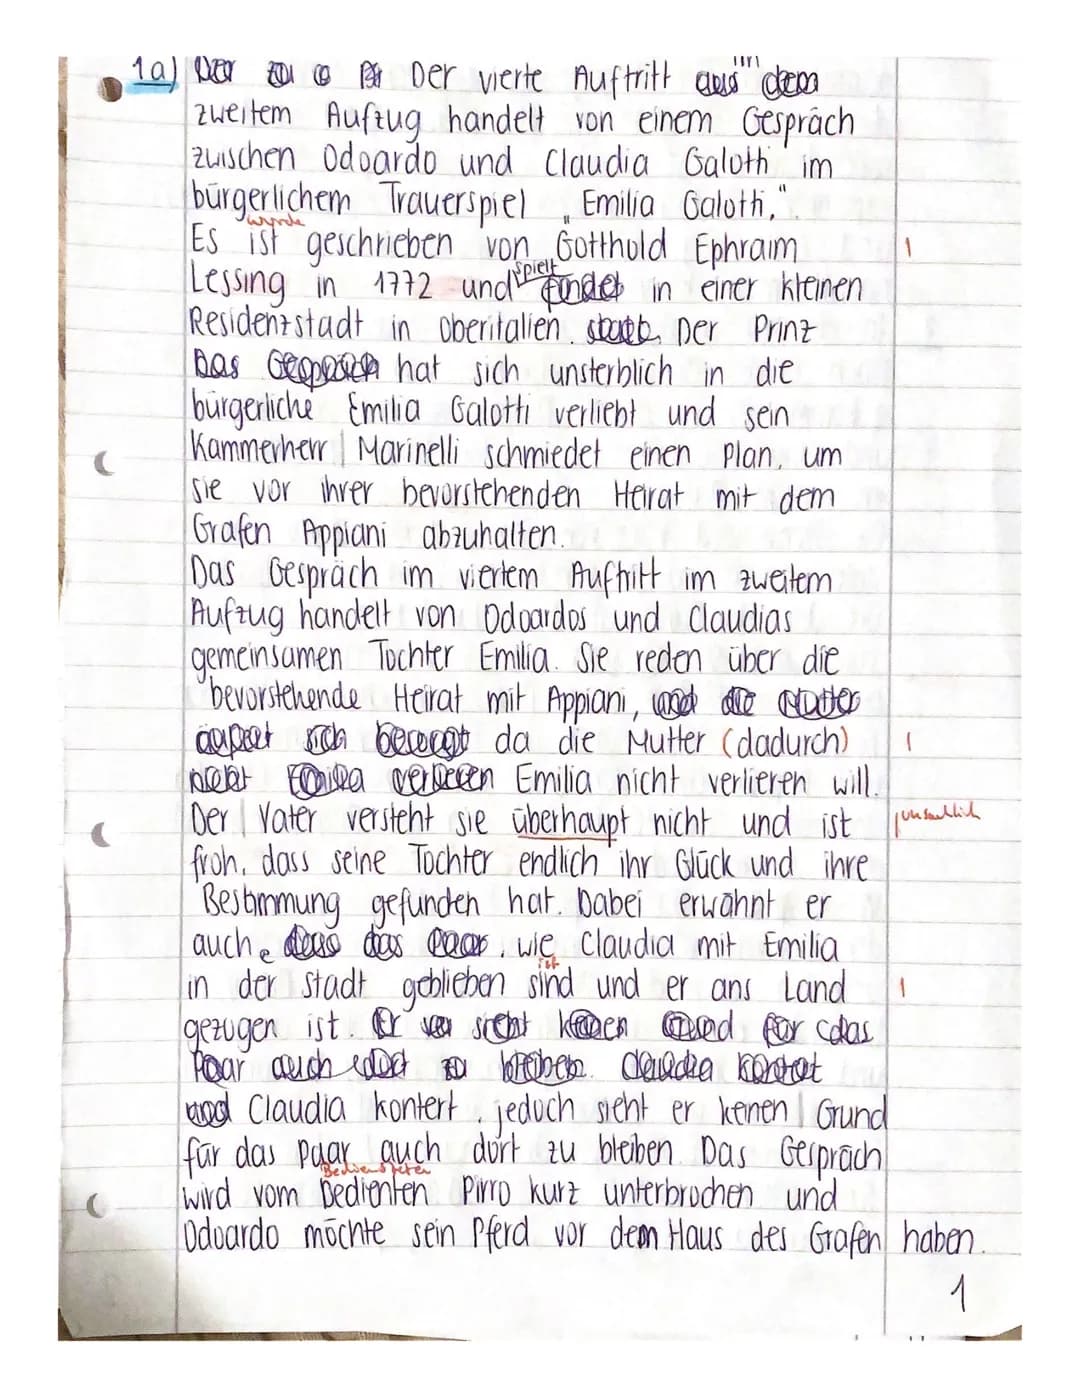 1a) Der zu Der vierte Auftritt aus in dem
zweitem Aufzug handelt von einem Gespräch
zwischen Odoardo und Claudia Galotti im
bürgerlichem Trauerspiel „Emilia Galotti."
wurde
Es ist geschrieben von Gotthold Ephraim
Lessing in 1772 und spielt findet in einer kleinen
Residenzstadt in Oberitalien. statt. Der Prinz
Das Gespräch hat sich unsterblich in die
bürgerliche Emilia Galotti verliebt und sein
Kammerherr Marinelli schmiedet einen Plan, um
sie vor ihrer bevorstehenden Heirat mit dem
Grafen Appiani abzuhalten.
Das Gespräch im viertem Auftritt im zweitem
Aufzug handelt von Odoardos und Claudias
gemeinsamen Tochter Emilia. Sie reden über die
bevorstehende Heirat mit Appiani, und die Mutter
äußert sich besorgt da die Mutter (dadurch)
nicht Emilia verlieren Emilia nicht verlieren will.
Der Vater versteht sie überhaupt nicht und ist
froh, dass seine Tochter endlich ihr Glück und ihre
Bestimmung gefunden hat. Dabei erwähnt er
auch, dass das Paar, wie Claudia mit Emilia
ist
in der Stadt geblieben sind und er ans Land
gezogen ist. Er sieht keinen Grund für das
Paar auch dort zu bleiben. Claudia kontert
und Claudia kontert, jedoch sieht er keinen Grund
für das Paar auch dort zu bleiben. Das Gespräch
Bediensteten
wird vom Bedienten Pirro kurz unterbrochen und
Odoardo möchte sein Pferd vor dem Haus des Grafen haben.
1